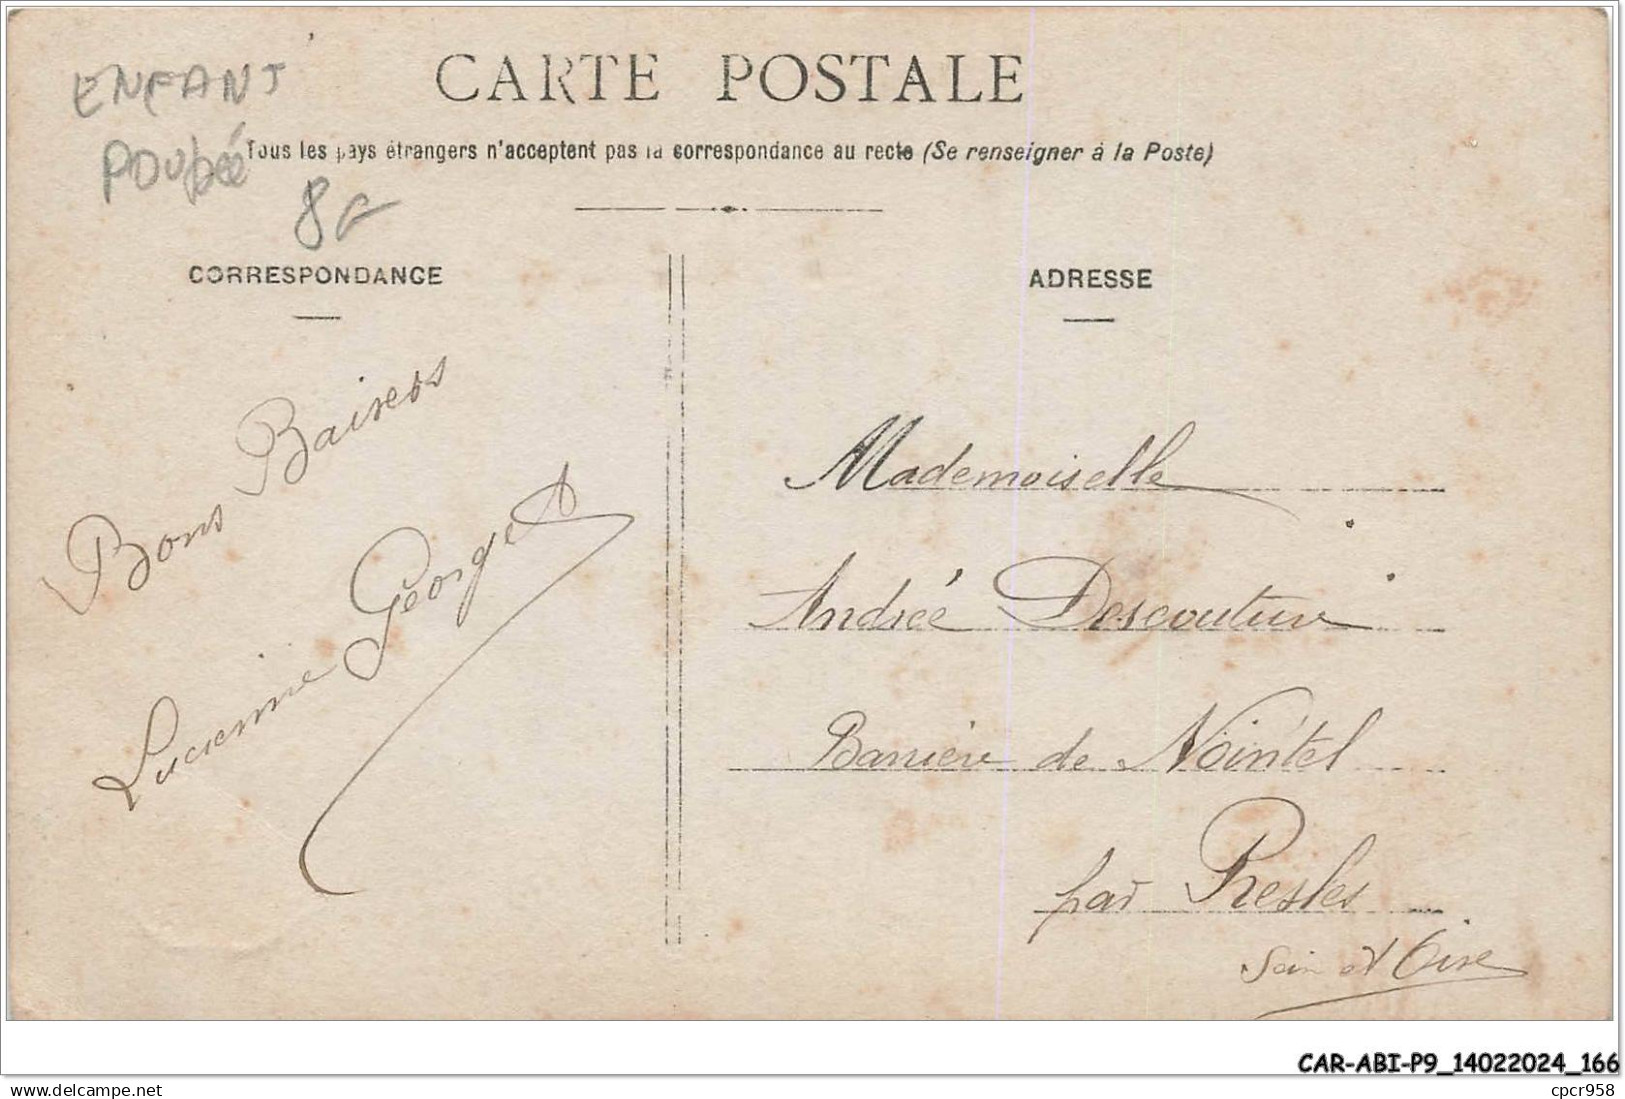 CARTE POSTALE
ENFANT
POUPÉE
Tous les pays étrangers n'acceptent pas la correspondance au recto (Se renseigner à la Poste)
8€
CORRESPONDANCE
Bons Baisers
Lucienne Georget
ADRESSE
Mademoiselle
Andrée Descouture
Barrière de Nointel
par Presles
Sein et Oise
CAR-ABI-P9_14022024_166
cpcr958